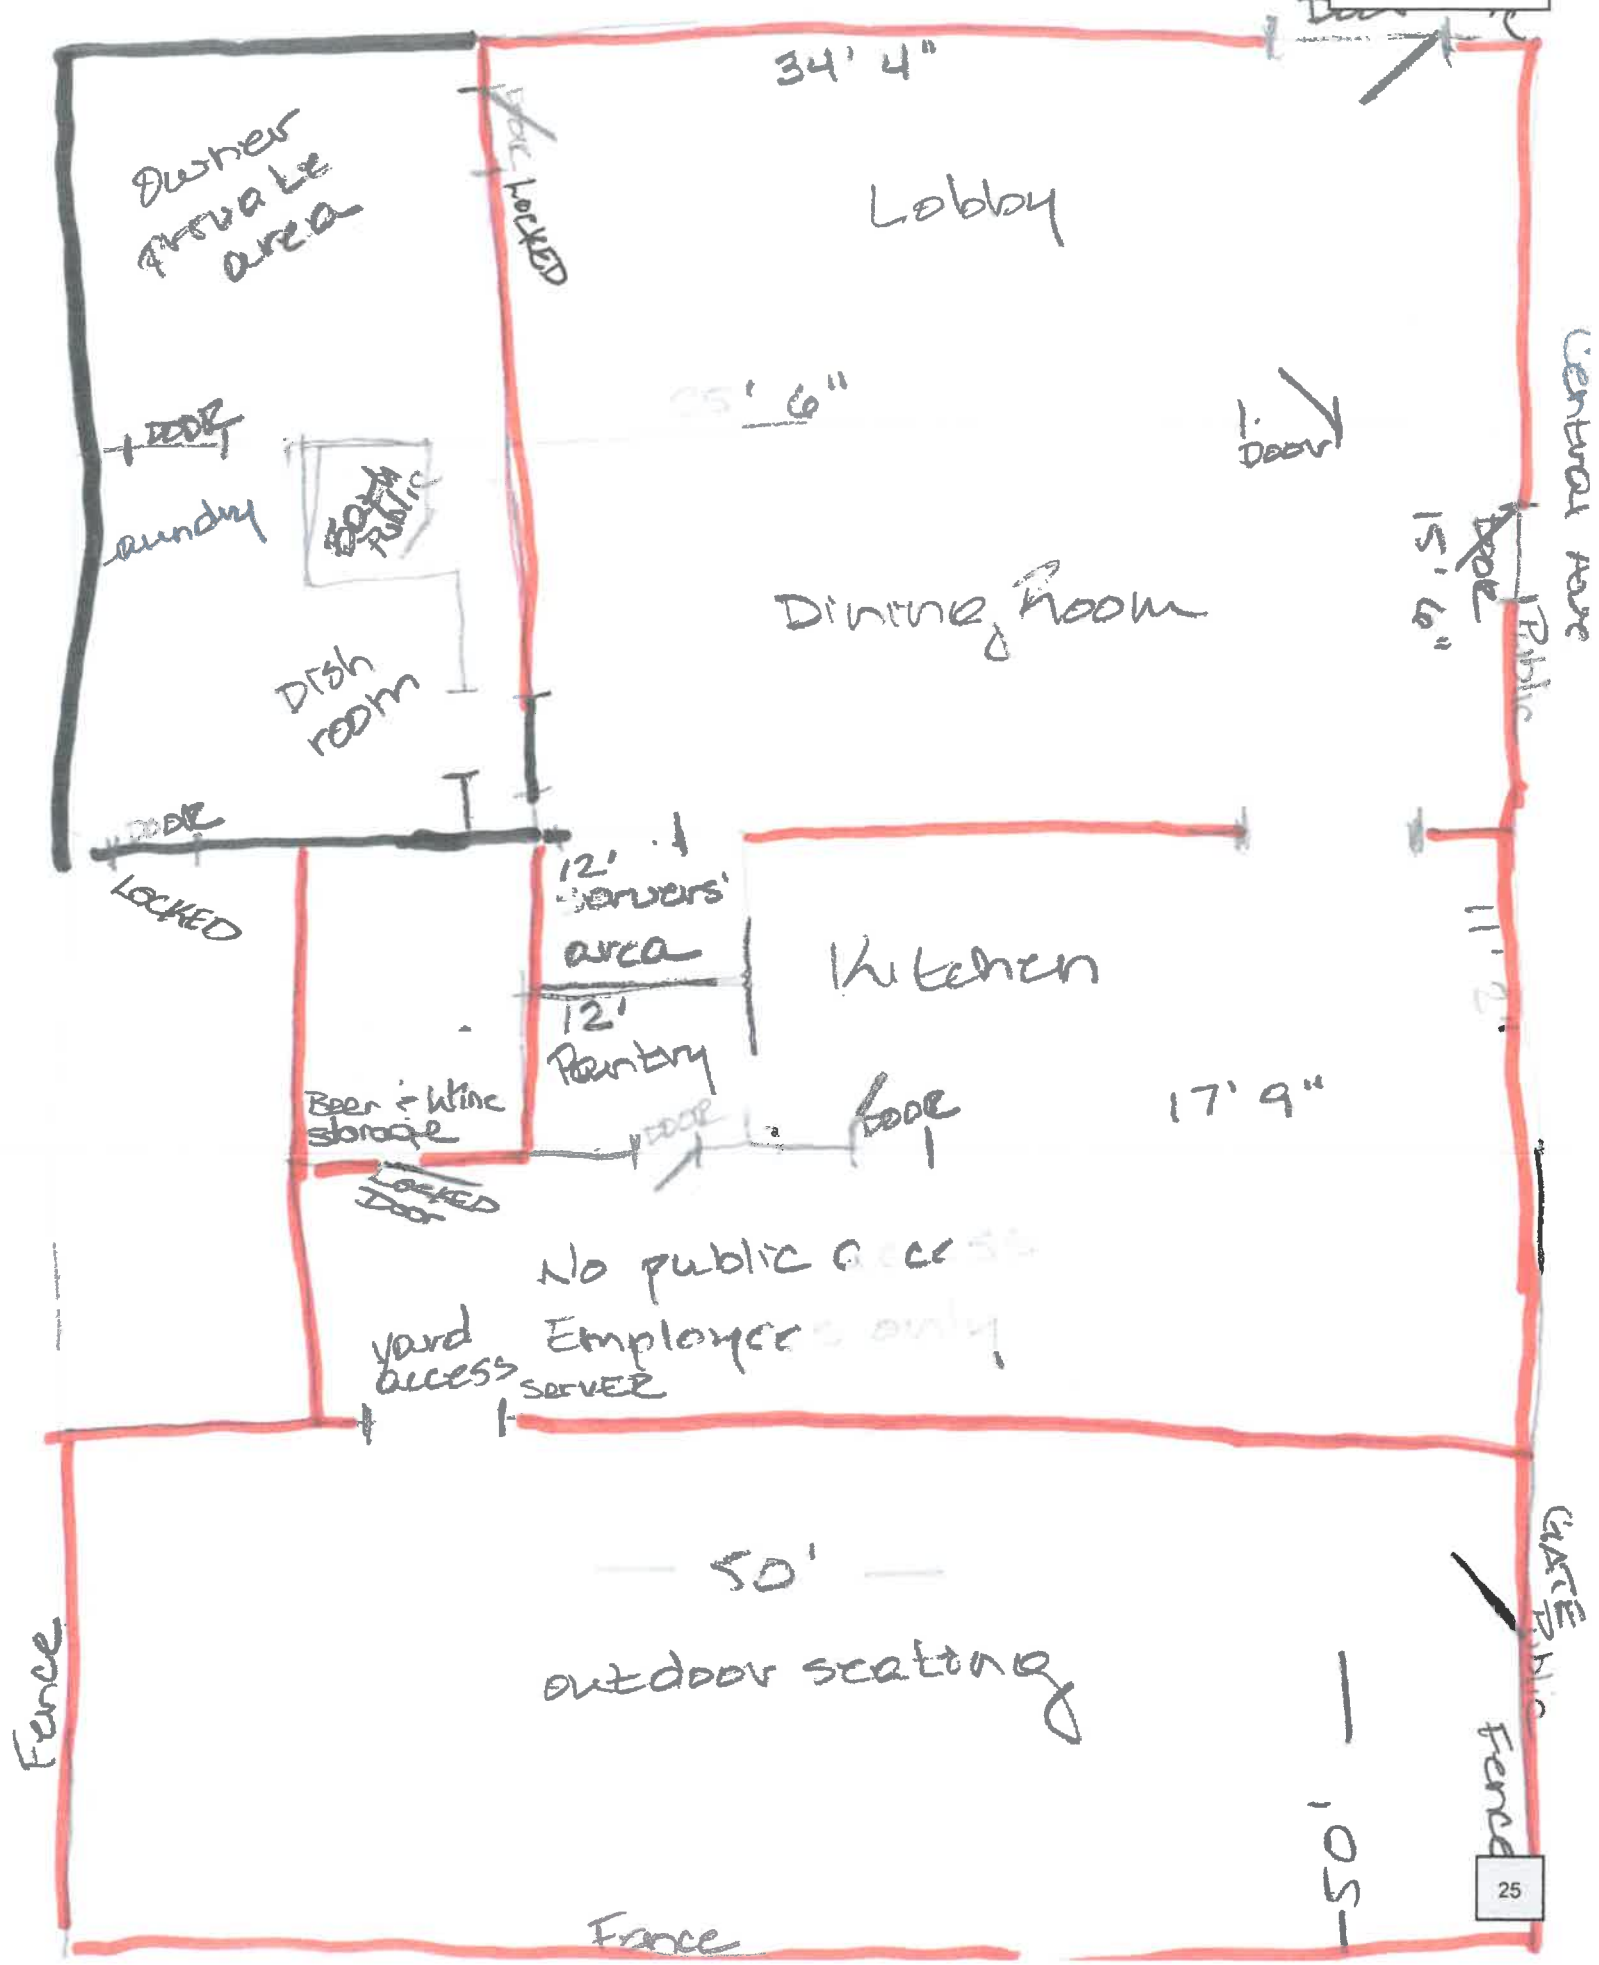 34' 4"
Owner
private
area
DOOR
LOCKED
Lobby
Central Ave
6"
DOOR
Door
Bath
Public
aundry
15' 6"
DOOR
Public
Dining Room
Dish
room
DOOR
LOCKED
12'
servers'
area
Kitchen
11' 2"
12'
Pantry
Beer & Wine
storage
DOOR
DOOR
17' 9"
LOCKED
Door
No public access
Employees only
yard
access
SERVER
50'
outdoor seating
GATE
Public
Fence
Fence
50'
25
France